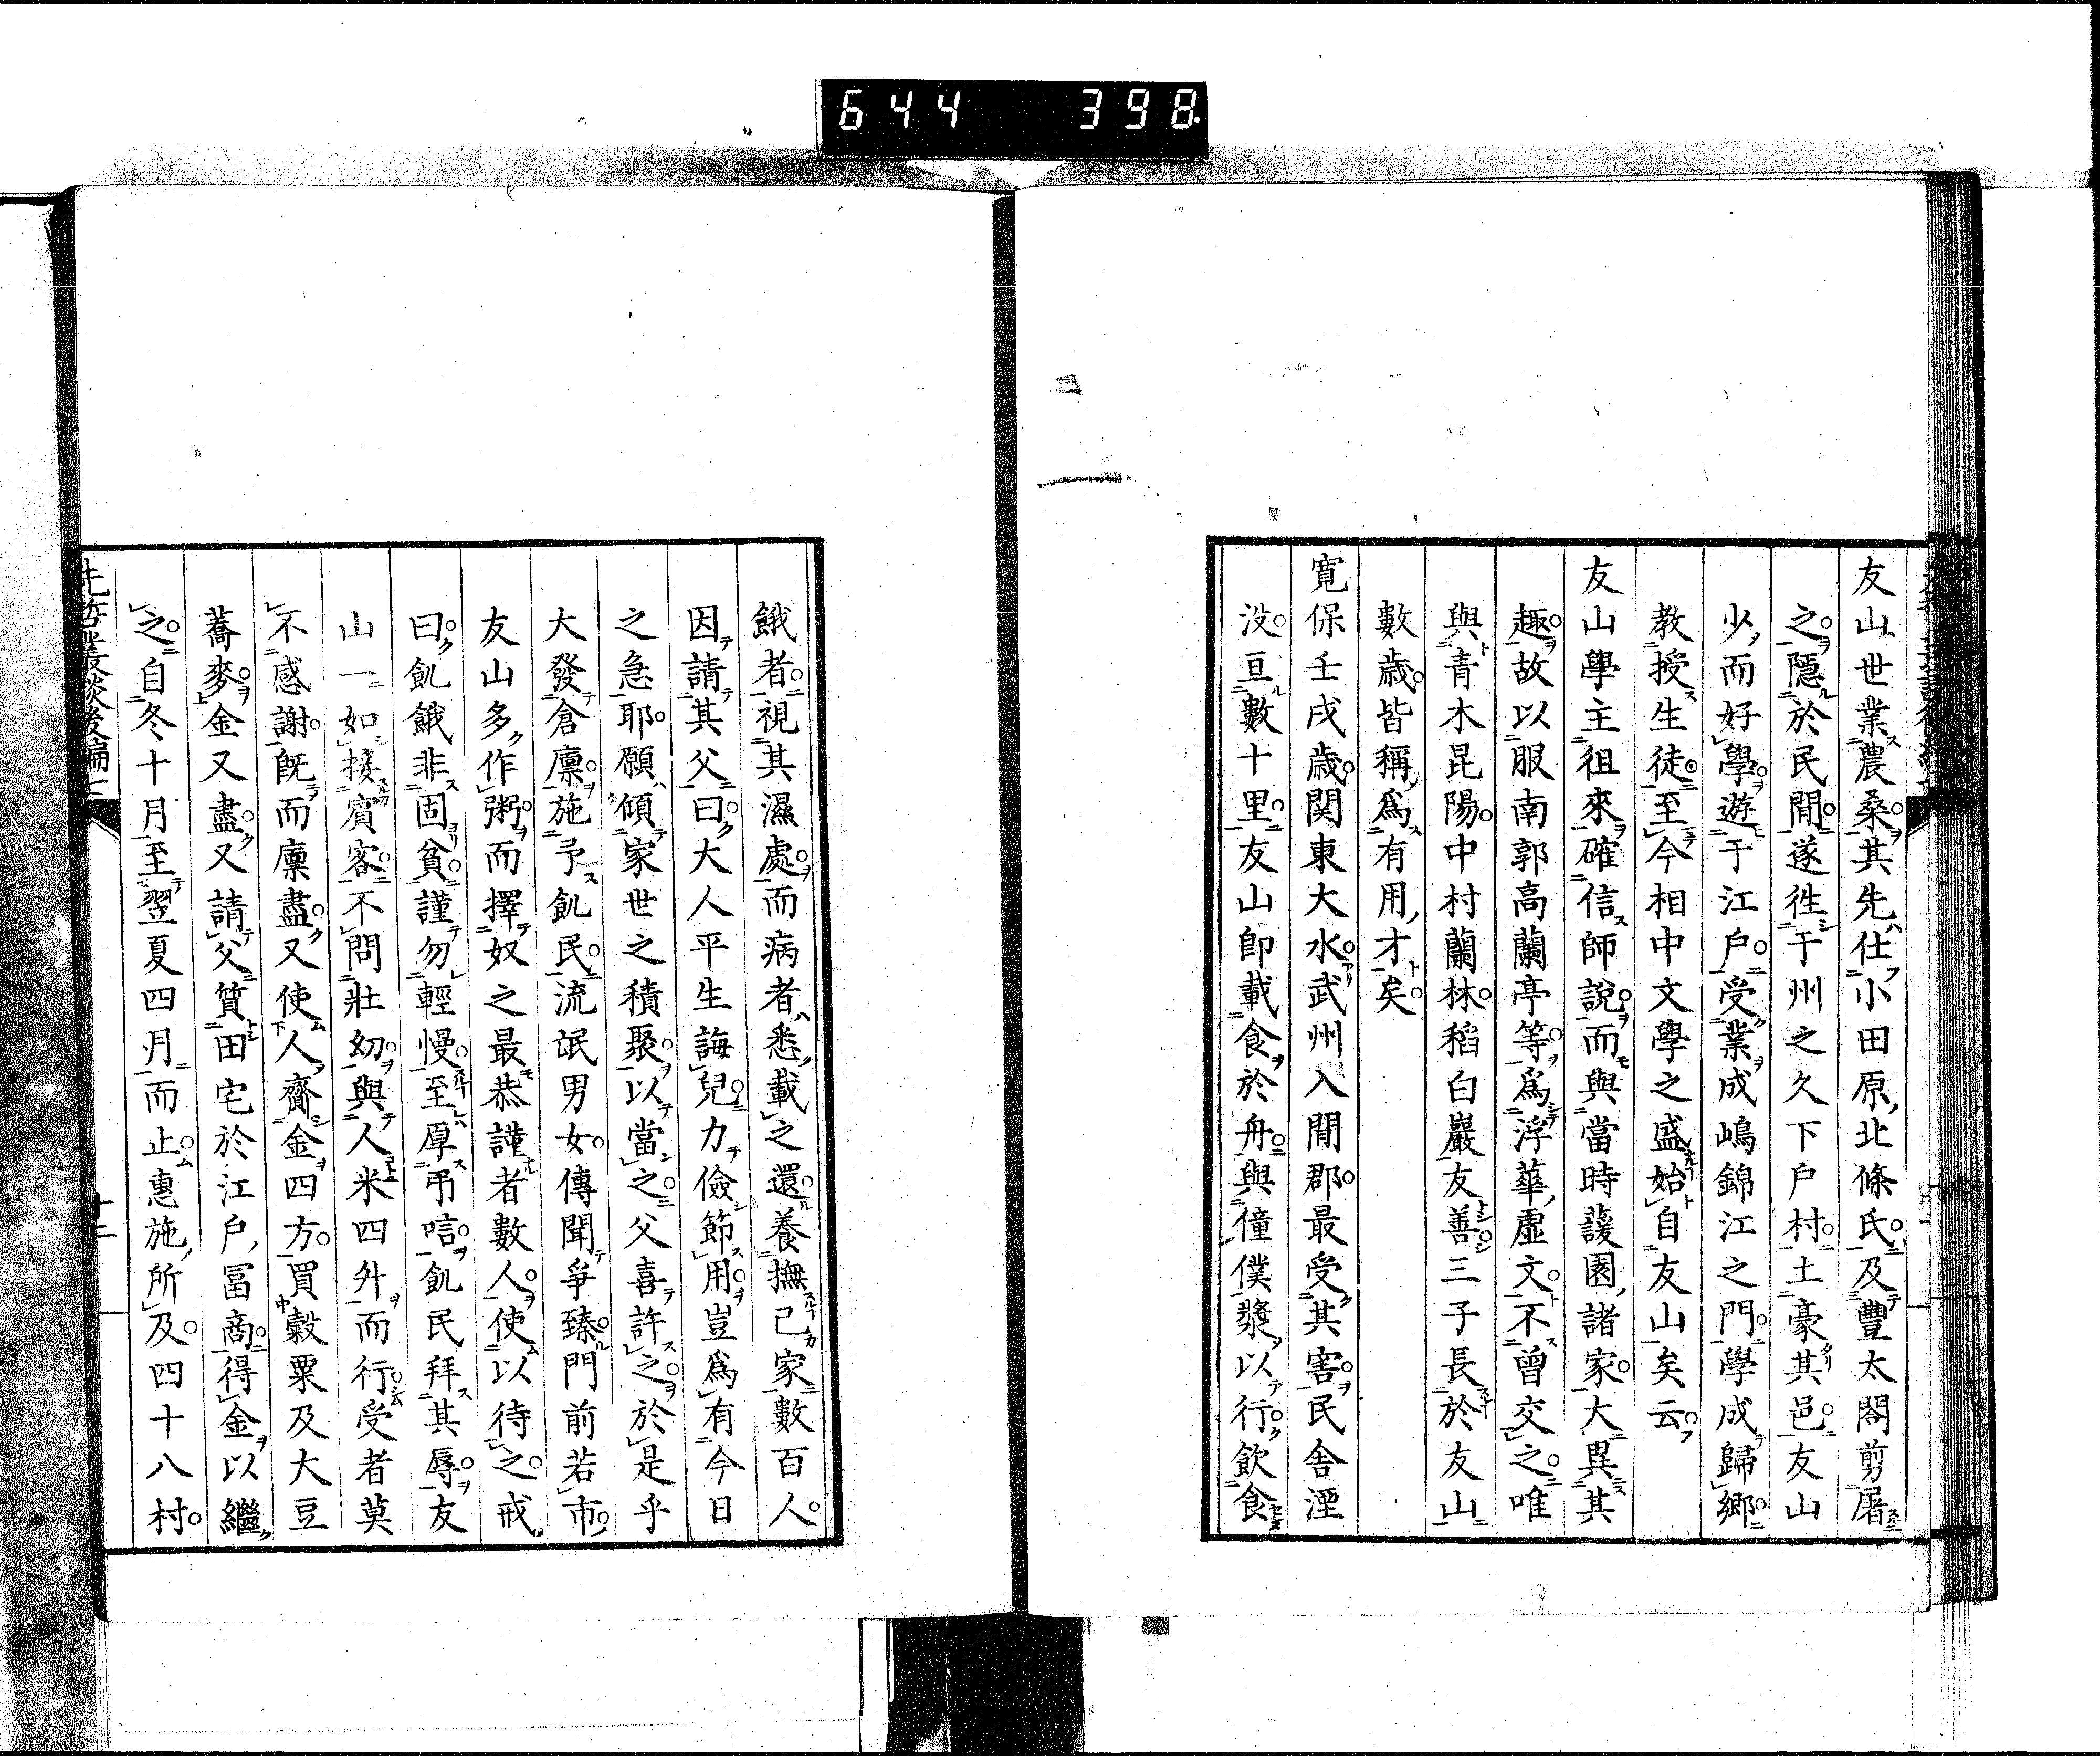 644 398
友山世業農桑其先仕小田原北條氏及豐太閤剪屠
之隱於民間遂徃于州之久下戸村土豪其邑友山
少而好學遊于江戸受業成嶋錦江之門學成歸鄉
教授生徒至今相中文學之盛始自友山矣云
友山學主徂來確信師說而與當時蘐園諸家大異其
趣故以服南郭高蘭亭等爲浮華虛文不曾交之唯
與青木昆陽中村蘭林稻白巖友善三子長於友山
數歳皆稱爲有用才矣
寛保壬戌歳関東大水武州入間郡最受其害民舍湮
没亘數十里友山卽載食於舟與僮僕漿以行飲食
餓者視其濕處而病者悉載之還養撫己家數百人
因請其父曰大人平生誨兒力儉節用豈爲有今日
之急耶願傾家世之積聚以當之父喜許之於是乎
大發倉廩施予飢民流氓男女傳聞爭臻門前若市
友山多作粥而擇奴之最恭謹者數人使以待之戒
曰飢餓非固貧謹勿輕慢至厚弔唁飢民拜其辱友
山一如接賓客不問壯幼與人米四外而行受者莫
不感謝旣而廩盡又使人齎金四方買穀粟及大豆
蕎麥金又盡又請父質田宅於江戸冨商得金以繼
之自冬十月至翌夏四月而止惠施所及四十八村
先哲叢談後編七
十二